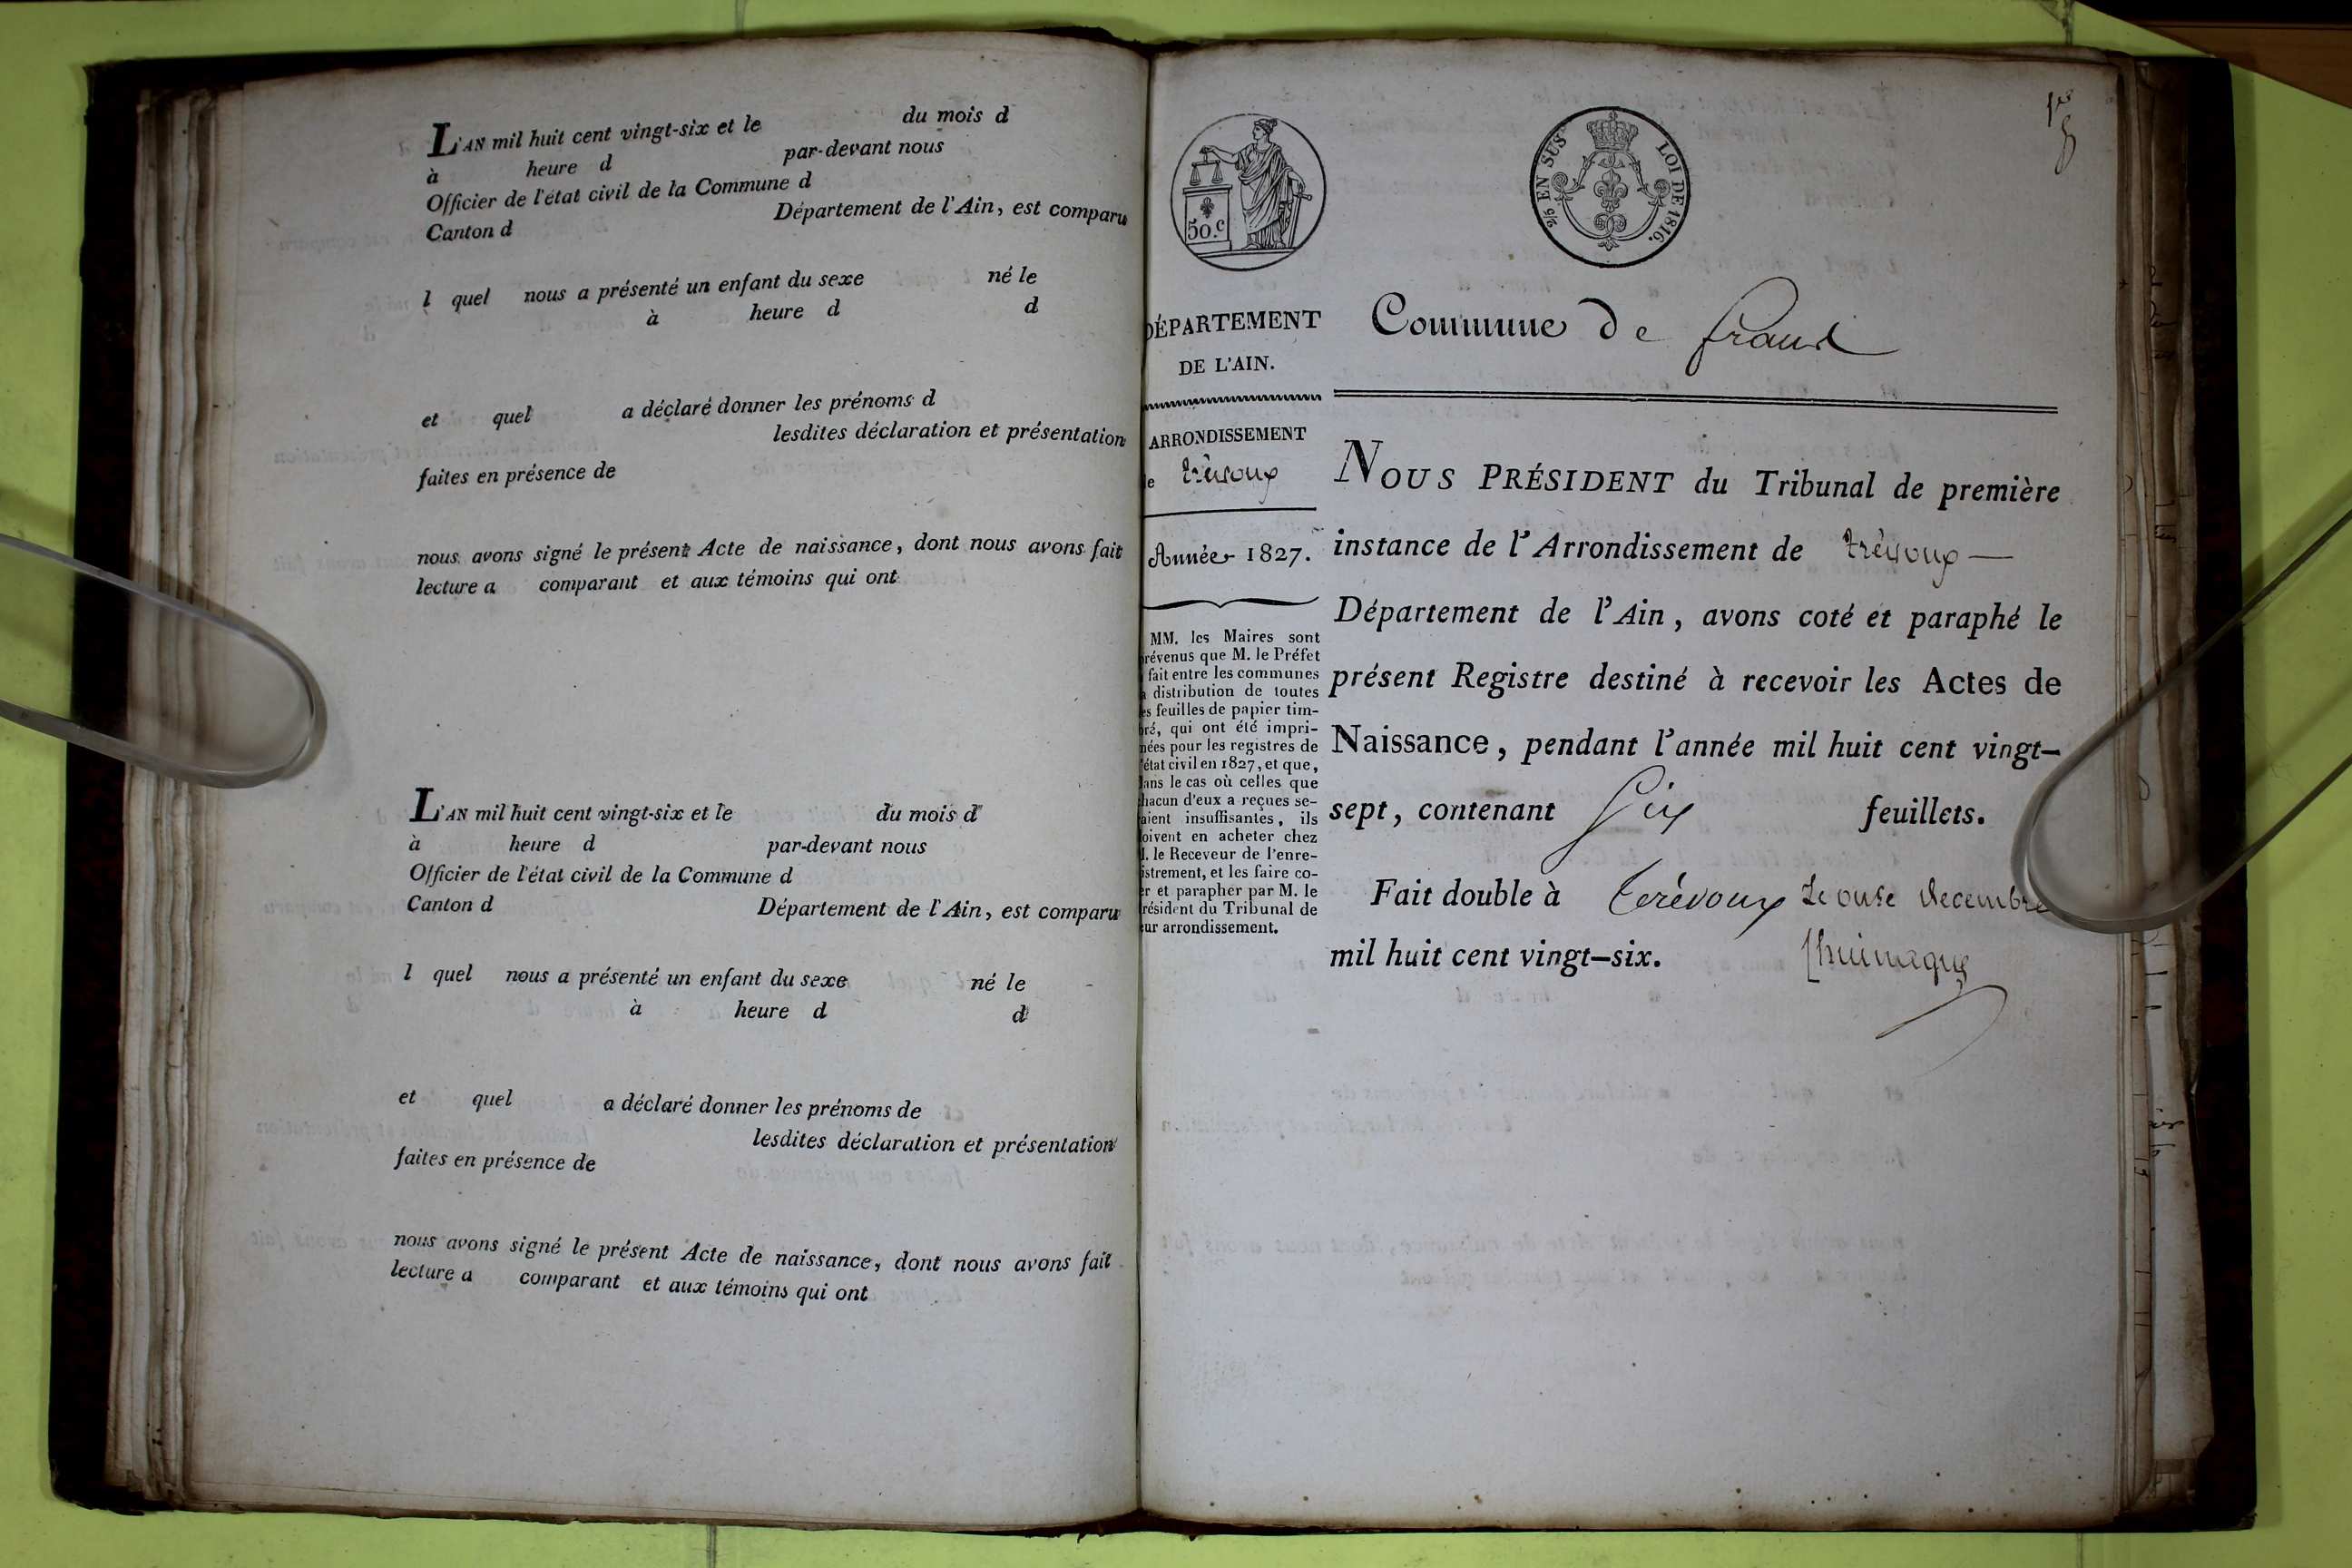 L'AN mil huit cent vingt-six et le du mois d
à heure d par-devant nous
Officier de l'état civil de la Commune d
Canton d Département de l'Ain, est comparu
l quel nous a présenté un enfant du sexe né le
à heure d d
et quel a déclaré donner les prénoms d
lesdites déclaration et présentation
faites en présence de
nous avons signé le présent Acte de naissance, dont nous avons fait
lecture a comparant et aux témoins qui ont
L'AN mil huit cent vingt-six et le du mois d
à heure d par-devant nous
Officier de l'état civil de la Commune d
Canton d Département de l'Ain, est comparu
l quel nous a présenté un enfant du sexe né le
à heure d d
et quel a déclaré donner les prénoms de
lesdites déclaration et présentation
faites en présence de
nous avons signé le présent Acte de naissance, dont nous avons fait
lecture a comparant et aux témoins qui ont
50.c
2/5 EN SUS
LOI DE 1816.
DÉPARTEMENT
DE L'AIN.
ARRONDISSEMENT
de trévoux
Année 1827.
MM. les Maires sont
prévenus que M. le Préfet
fait entre les communes
la distribution de toutes
les feuilles de papier tim-
bré, qui ont été impri-
mées pour les registres de
l'état civil en 1827, et que,
dans le cas où celles que
chacun d'eux a reçues se-
raient insuffisantes, ils
doivent en acheter chez
M. le Receveur de l'enre-
gistrement, et les faire co-
ter et parapher par M. le
Président du Tribunal de
leur arrondissement.
Commune de frans
NOUS PRÉSIDENT du Tribunal de première
instance de l'Arrondissement de trévoux —
Département de l'Ain, avons coté et paraphé le
présent Registre destiné à recevoir les Actes de
Naissance, pendant l'année mil huit cent vingt-
sept, contenant Six feuillets.
Fait double à trévoux Le onse decembre
mil huit cent vingt-six.